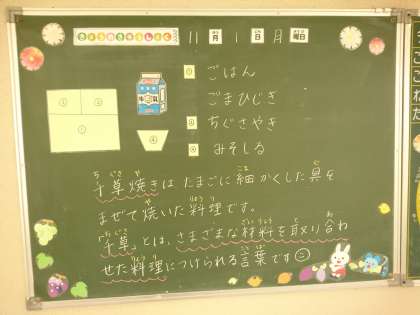 きょうのきゅうしょく 11月1日月曜日
① ごはん
② ごまひじき
③ ちぐさやき
④ みそしる
① ② ③ 牛乳 ④
千草焼きは たまごに細かくした具を
まぜて焼いた料理です。
「千草」とは、さまざまな材料を取り合わ
せた料理につけられる言葉です